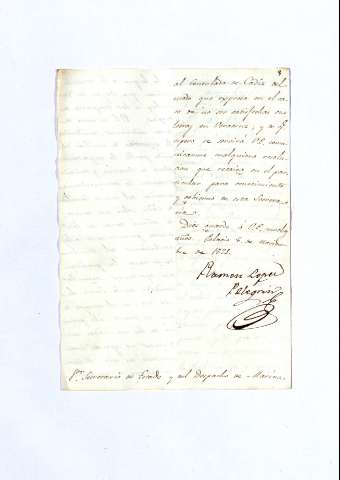 al Consulado de Cadiz del
modo que expresa en el ca-
so de no ser satisfechas en-
teras en Veracruz, y de qe
espero se servirá V.E. comu-
nicarme cualquiera resolu-
cion que recaiga en el par-
ticular para conocimiento
y gobierno de esta Secreta-
ria.
Dios guarde á V.E. muchos
años. Palacio 6 de
de 1821.
Ramon Lopez
Pelegrin
Sor. Secretario de Estado y del Despacho de Marina.